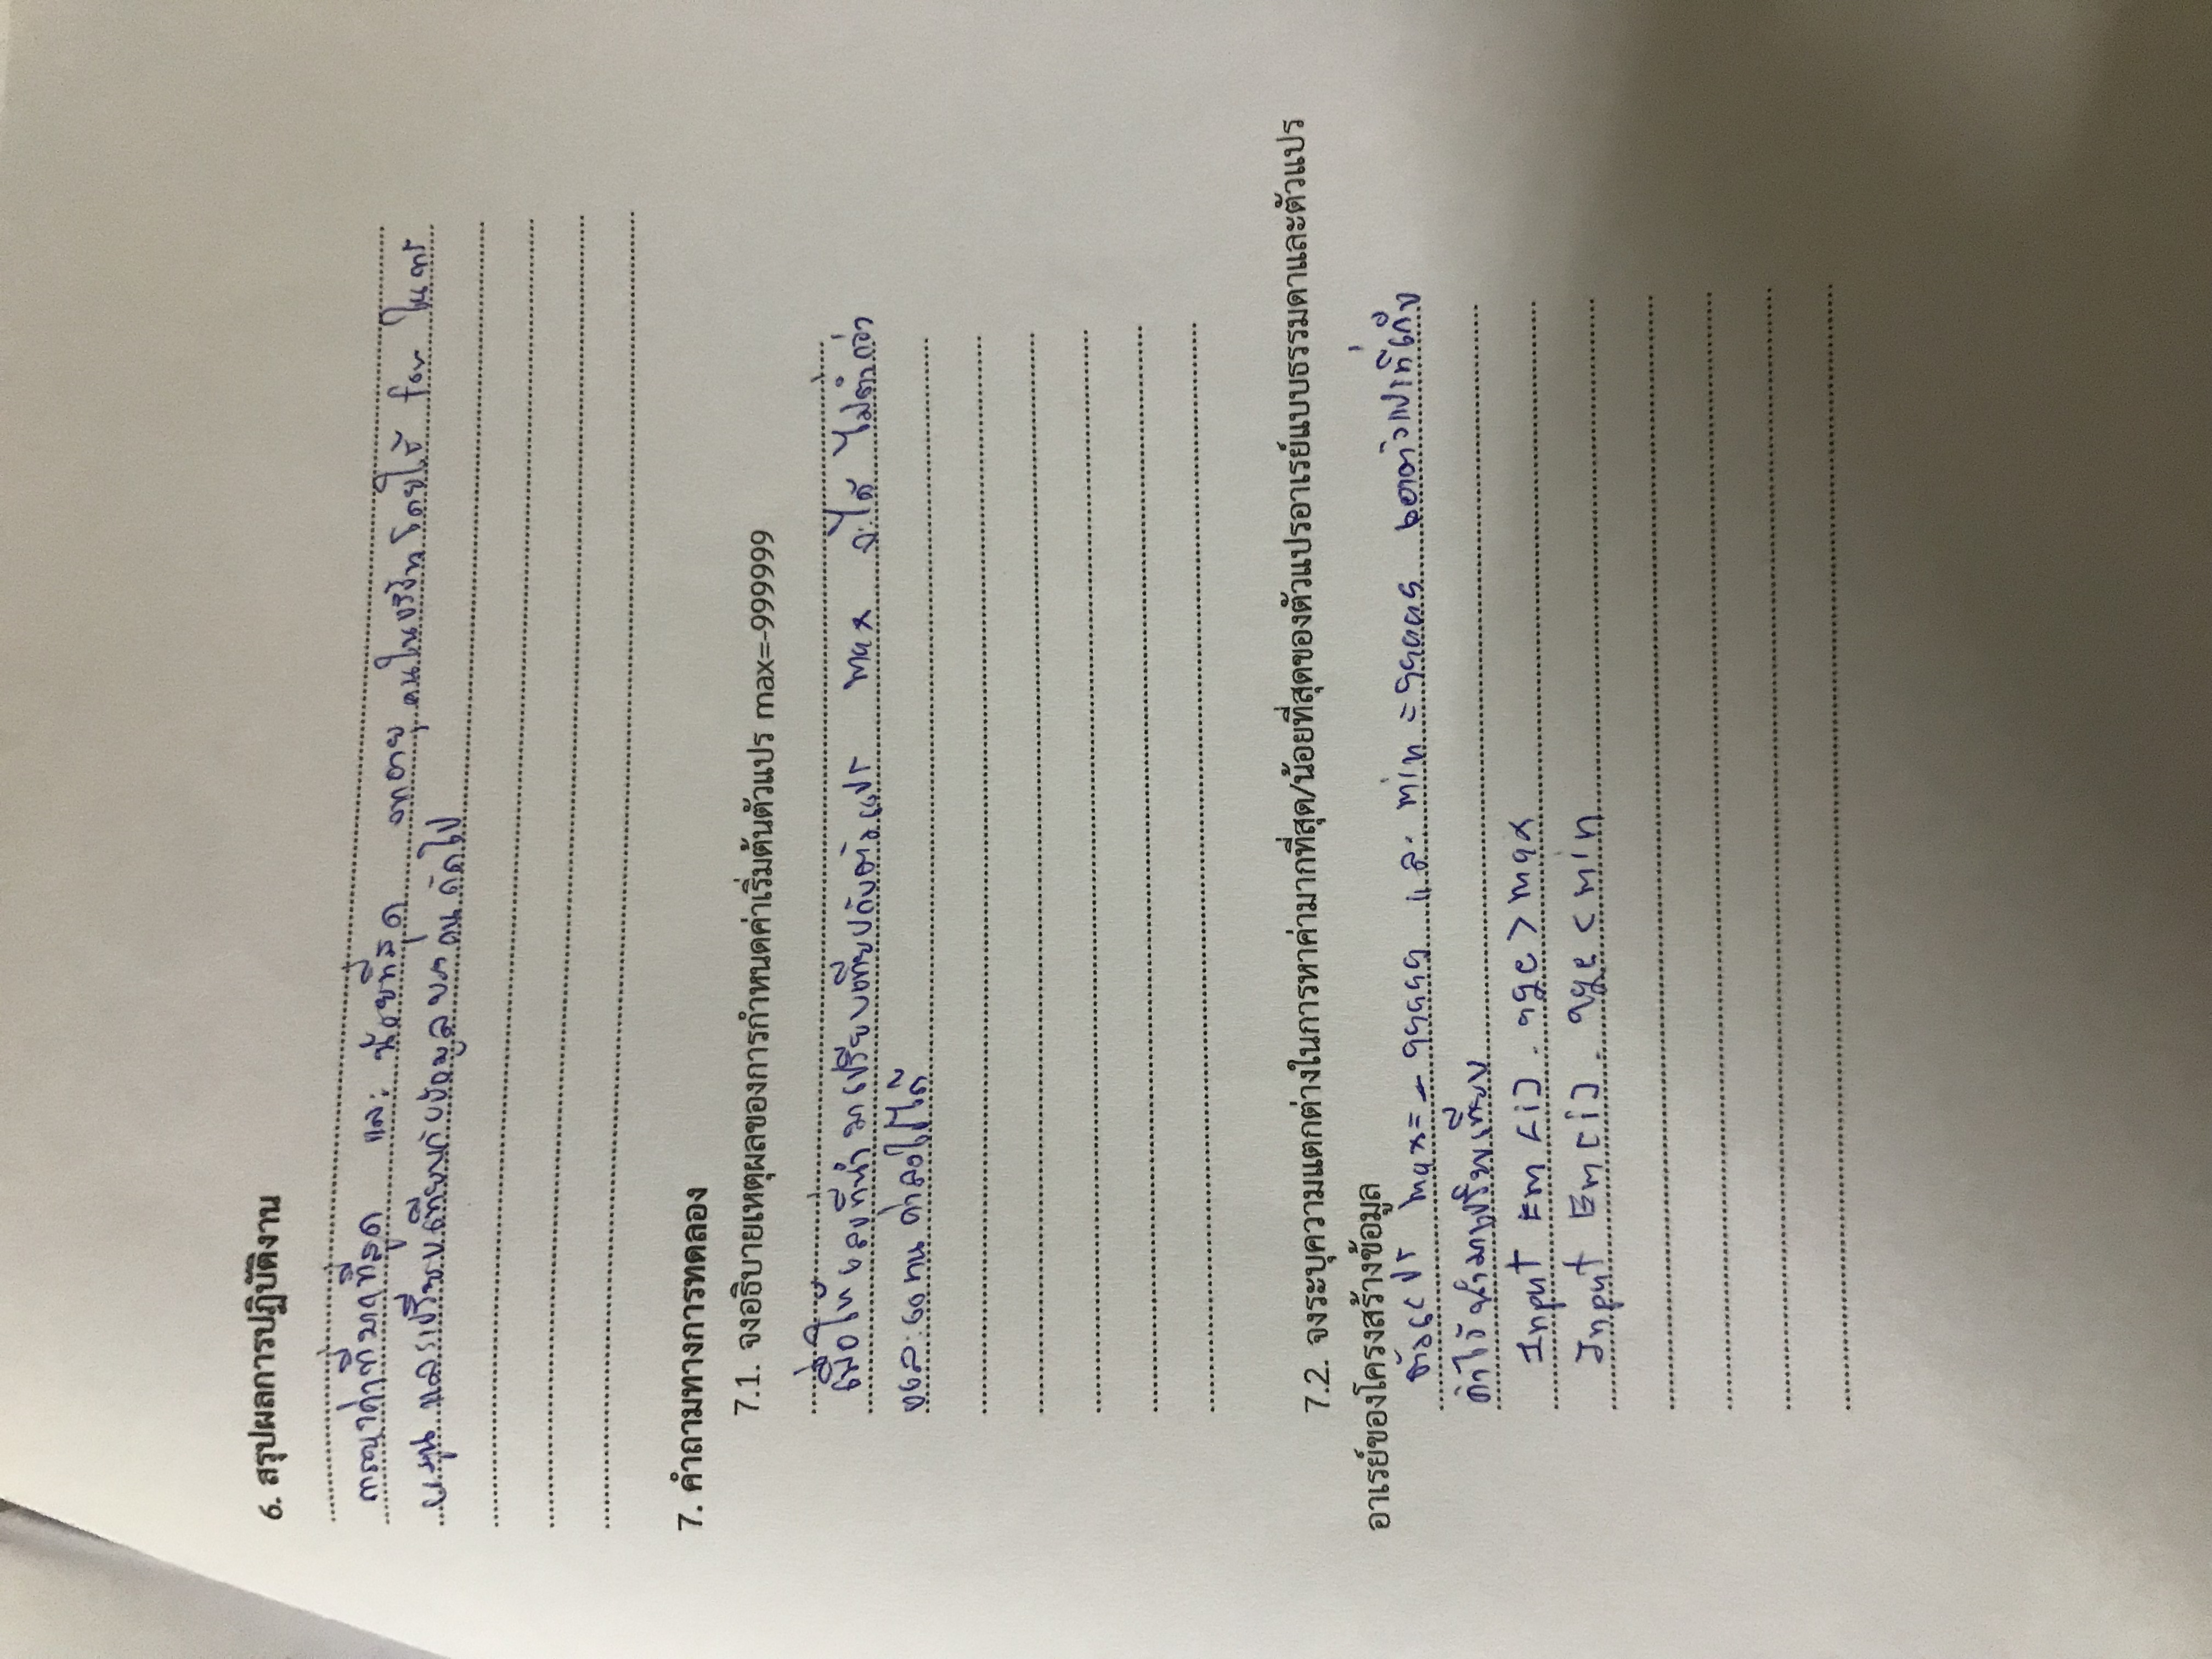 6. สรุปผลการปฏิบัติงาน
การหาค่าที่มากที่สุด และ น้อยที่สุด จากอายุ คนในบริษัท โดยใช้ for ในการ
หมุน และเปรียบเทียบกับข้อมูลของคนถัดไป
7. คำถามทางการทดลอง
7.1. จงอธิบายเหตุผลของการกำหนดค่าเริ่มต้นตัวแปร max=-999999
เพื่อให้เลขที่นำมาเปรียบเทียบกับตัวแปร max จะได้ ไม่ต่ำกว่า
และแทนค่าลงไปได้
7.2. จงระบุความแตกต่างในการหาค่ามากที่สุด/น้อยที่สุดของตัวแปรอาเรย์แบบธรรมดาและตัวแปร
อาเรย์ของโครงสร้างข้อมูล
ตัวแปร max=-99999 และ min=99999 เอาตัวแปรที่เก็บ
ค่าไว้นำมาเปรียบเทียบ
Input Em[i].age>max
Input Em[i].age<min